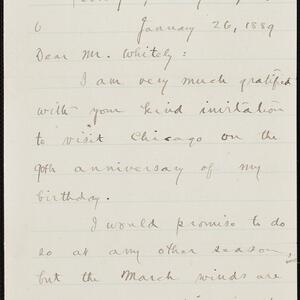 6
January 26, 1889
Dear Mr. Whitely:
I am very much gratified
with your kind invitation
to visit Chicago on the
90th anniversary of my
birthday.
I would promise to do
so at any other season,
but the March winds are